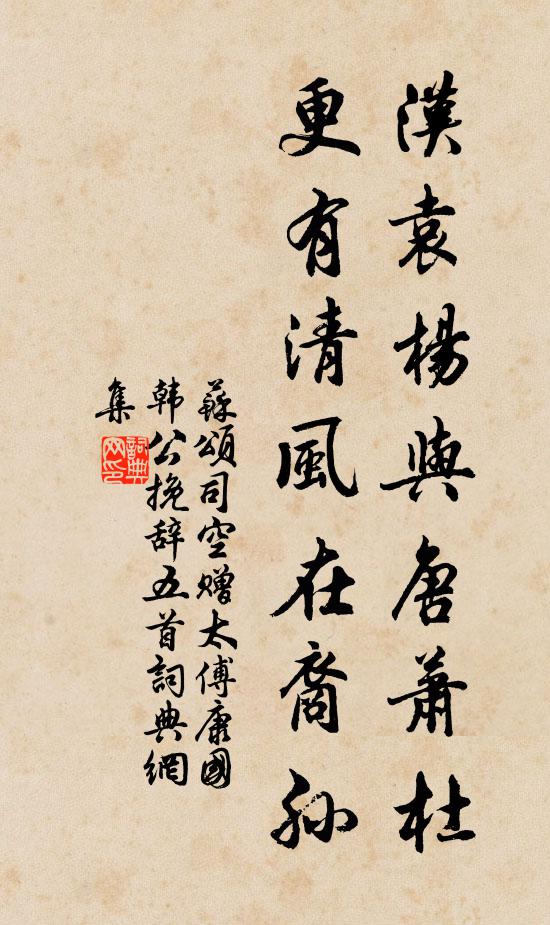 漢袁楊與唐蕭杜
更有清風在裔孫
蘇頌司空贈太傅康國
韓公挽辞五首詞典網
集
詞典網印